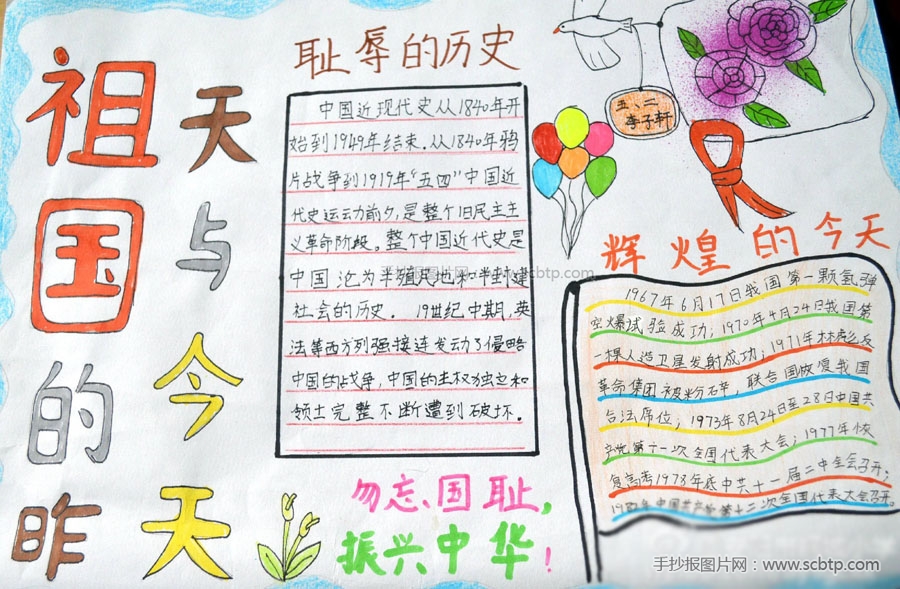 祖国的昨
天与今天
耻辱的历史
中国近现代史从1840年开
始到1949年结束。从1840年鸦
片战争到1919年“五四”中国近
代史运动前夕，是整个旧民主主
义革命阶段。整个中国近代史是
中国沦为半殖民地和半封建
社会的历史。19世纪中期，英
法等西方列强接连发动了侵略
中国的战争，中国的主权独立和
领土完整不断遭到破坏。
勿忘国耻，
振兴中华！
五、二
李子轩
辉煌的今天
1967年6月17日我国第一颗氢弹
空爆试验成功；1970年4月24日我国第
一棵人造卫星发射成功；1971年林彪反
革命集团被粉碎，联合国恢复我国
合法席位；1973年8月24日至28日中国共
产党第十一次全国代表大会；1977年恢
复高考1978年底中共十一届三中全会召开；
第十二次全国代表大会召开。
手抄报图片网：www.scbtp.com
手抄报图片网：www.scbtp.com